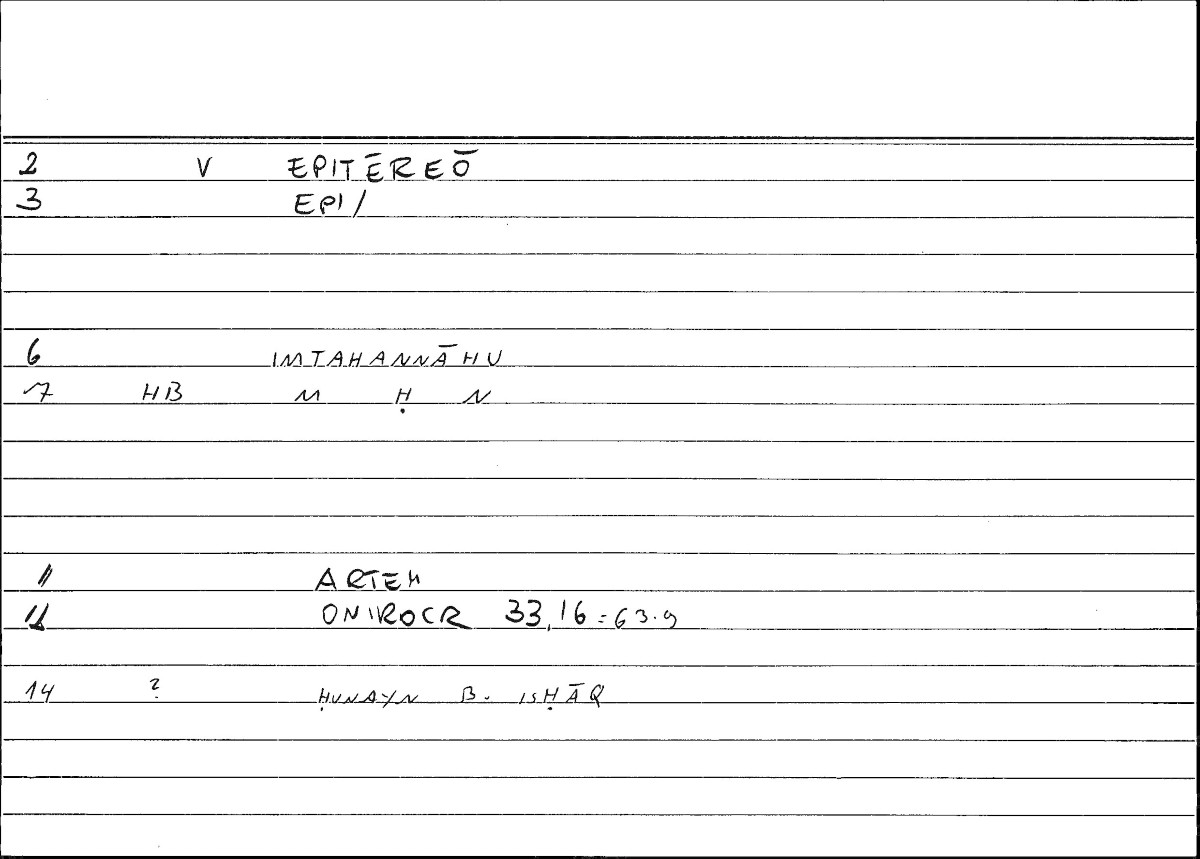 2 V EPITĒREŌ
3 EPI/
6 IMTAHANNĀHU
7 HB M Ḥ N
11 ARTEM
12 ONIROCR 33,16 = 63.9
14 ? ḤUNAYN B. ISḤĀQ